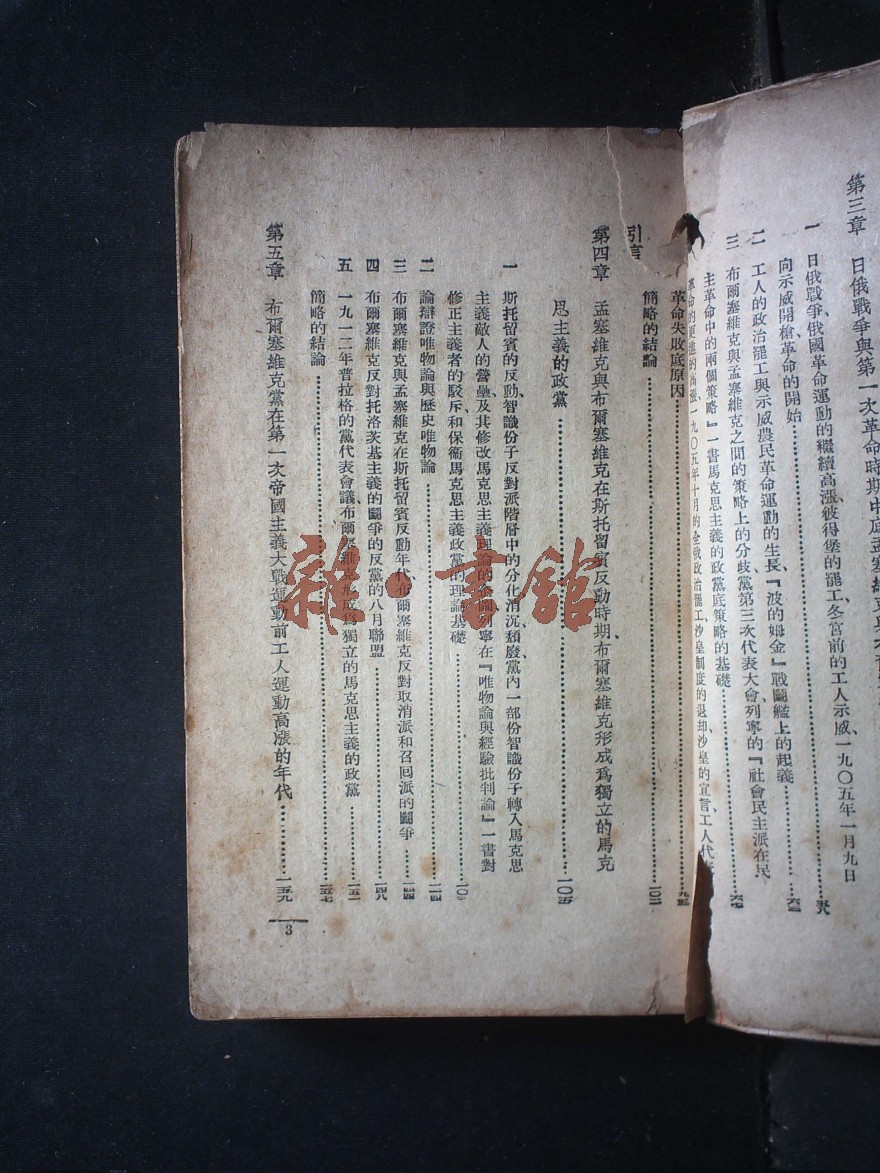 第三章 日俄戰爭與第一次革命時期中底孟塞維克與布爾
一 日俄戰爭、俄國革命運動的繼續高漲、彼得堡的罷工、冬宮前的工人示威、一九〇五年一月九日
向示威開槍革命的開始
二 工人的政治罷工與示威農民革命運動的生長、『波的姆金』戰鬭艦上的起義 六
三 布爾塞維克與孟塞維克之間的策略上的分歧黨第三次代表大會列寧的『社會民主派在民
主革命中的兩個策略』一書馬克思主義的政黨底策略的基礎 六七
革命的更進的高漲一九〇五年十月的全俄政治罷工、沙皇制度的退却沙皇的宣言、工人代表
革命失敗底原因 九
簡略的結論 一〇二
引言
第四章 孟塞維克與布爾塞維克在斯托留賓反動時期、布爾塞維克形成爲獨立的馬克
思主義的政黨 一〇五
一 斯托留賓的反動、智識份子反對派階層中的分化消沉頹廢黨內一部份智識份子轉入馬克思
主義敵人的營壘、及其修改馬克思主義理論的企圖列寧在『唯物論與經驗批判論』一書對
修正主義者的駁斥和保衞馬克思主義政黨的理論基礎 一〇
二 論辯證唯物論與歷史唯物論 一一四
三 布爾塞維克與孟塞維克在斯托留賓反動年代、布爾塞維克反對取消派和召囘派的鬭爭 一四四
四 布爾塞維克反對托洛茨基主義的鬭爭的反黨的八月聯盟 一四八
五 一九一二年普拉格的黨代表會議、布爾塞維克形成爲獨立的馬克思主義的政黨 一五一
簡略的結論 一五七
第五章 布爾塞維克黨在第一次帝國主義大戰運動前工人運動高漲的年代 一五九
3
雜·書館